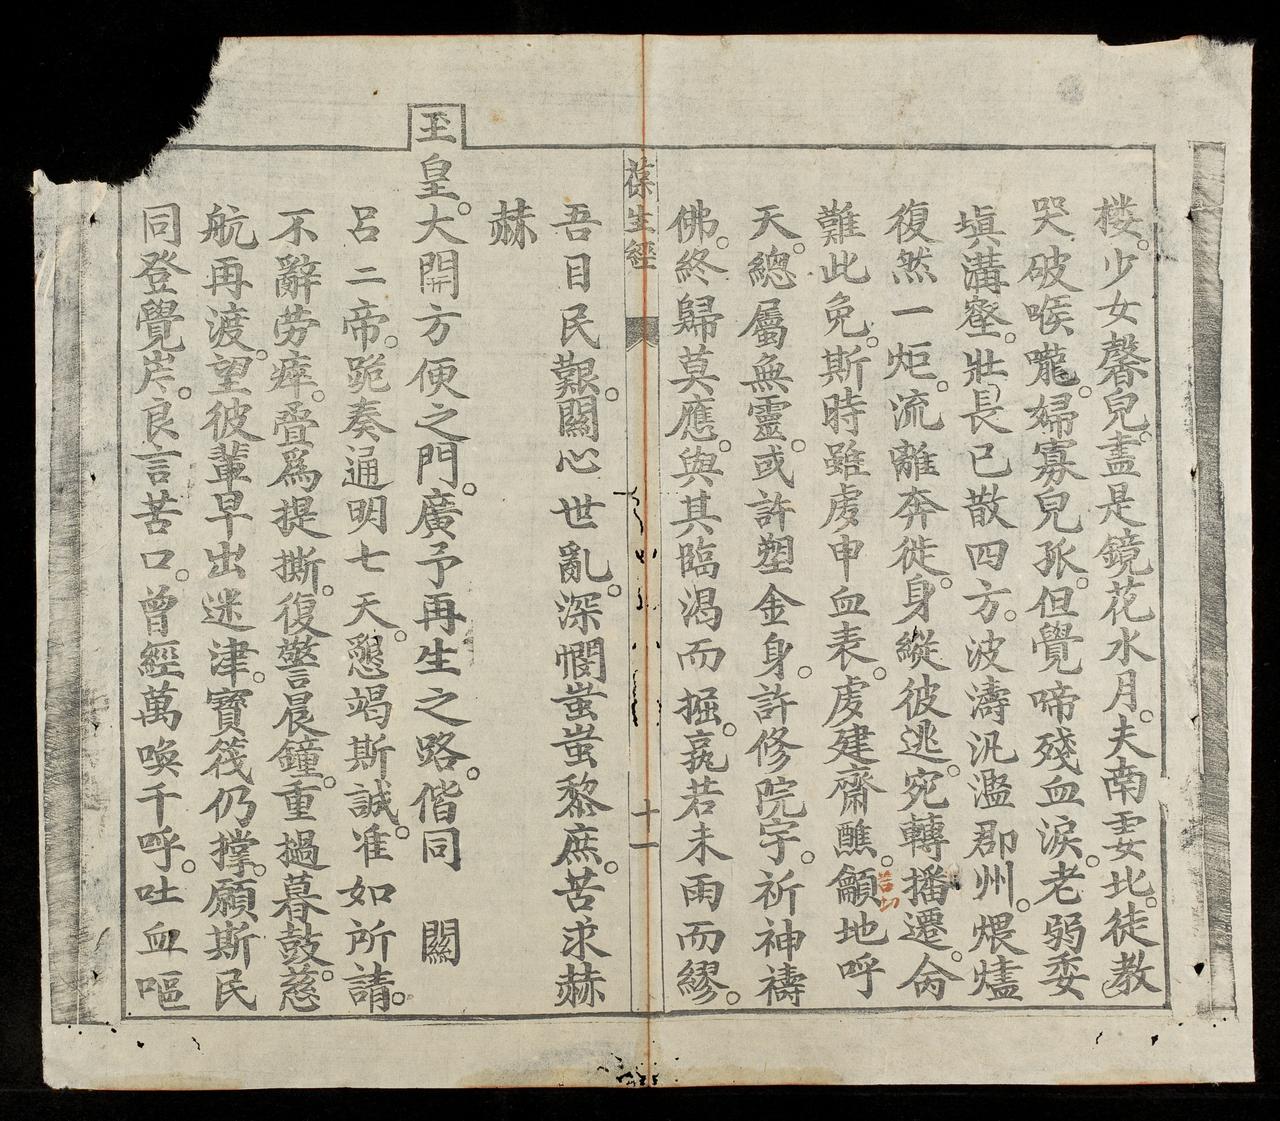 楼。少女馨兒。盡是鏡花水月。夫南妻北。徒教
哭破喉嚨。婦寡兒孤。但覺啼殘血淚。老弱委
塡溝壑。壯長已散四方。波濤汎濫郡州。煨燼
復然一炬。流離奔徙。身縱彼逃。宛轉播遷。命
難此免。斯時雖虔申血表。虔建齋醮。籲地呼
苦切
天。總屬無靈。或許塑金身。許修院宇。祈神禱
佛。終歸莫應。與其臨渴而掘。孰若未雨而繆。
葆生經
十一
吾目民艱。關心世亂。深憫蚩蚩黎庶。苦求赫
赫
玉皇。大開方便之門。廣予再生之路。偕同 關
呂二帝。跪奏通明七天。懇竭斯誠。准如所請。
不辭勞瘁。疊爲提撕。復警晨鐘。重撾暮鼓。慈
航再渡。望彼輩早出迷津。寶筏仍撑。願斯民
同登覺岸。良言苦口。曾經萬喚千呼。吐血嘔